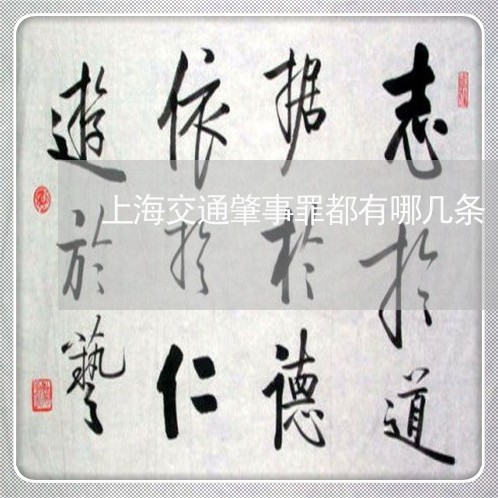 志於道
据於德
依於仁
遊於藝
上海交通肇事罪都有哪几条